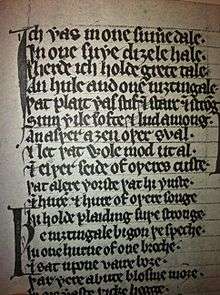 Ich ƿas in one sum̅e dale.
In one suþe diȝele hale.
Iherde ich holde grete tale.
An hule and one niȝtingale.
Þat plait ƿas stif & starc & strong.
Sum ƿile softe & lud among.
An aiþer aȝen oþer sval.
& let þat ƿole mod ut al.
& eiþer seide of oþeres custe.
Þat alre ƿorste þat hi ƿuste.
& hure & hure of oþere songe
Hi holde plaiding suþe stronge.
Þe niȝtingale bigon þe speche.
In one hurne of one breche.
& sat upone vaire boȝe.
Þar ƿere abute blosme inoȝe.
In ore ƿaste þicke hegge.